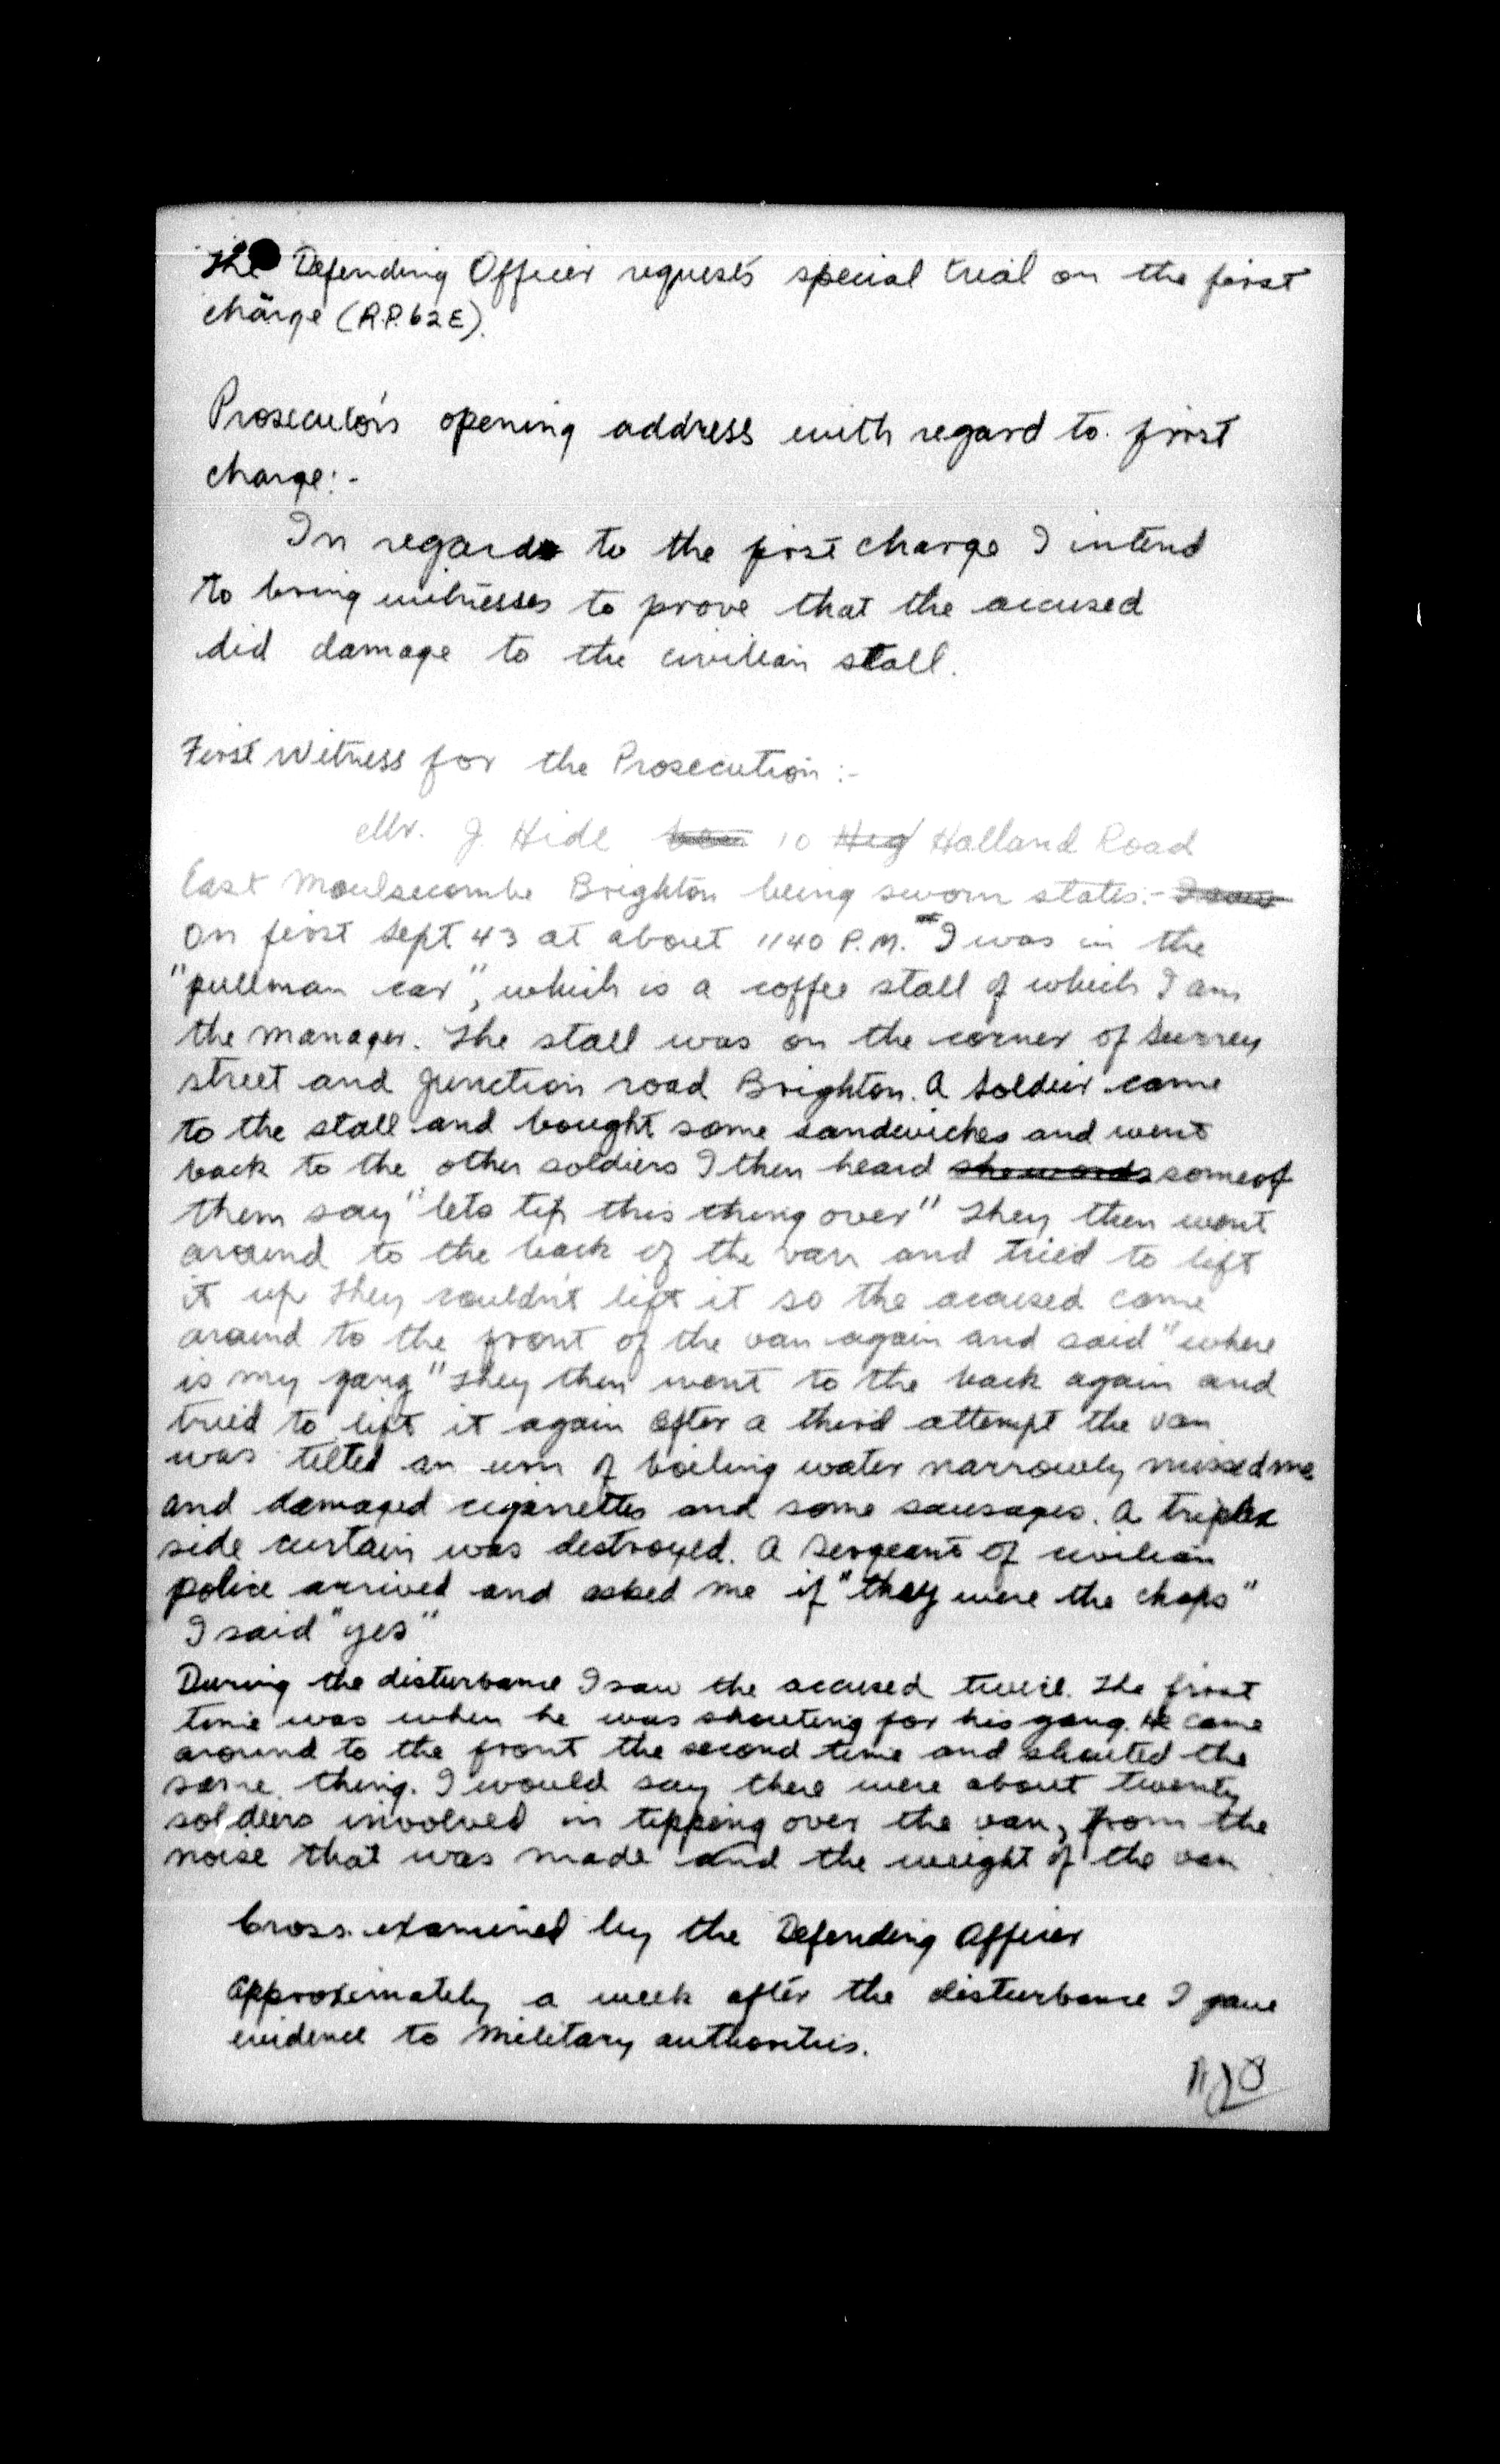 The Defending Officer requests special trial on the first
charge (R.P. 62 E).
Prosecutor's opening address with regard to first
charge:-
In regard to the first charge I intend
to bring witnesses to prove that the accused
did damage to the civilian stall.
First Witness for the Prosecution :-
Mr. J Hide 10 Heg Halland Road
East Moulsecombe Brighton being sworn states:- I saw
On first Sept 43 at about 1140 P.M. I was in the
"pullman car", which is a coffee stall of which I am
the manager. The stall was on the corner of Surrey
street and Junction road Brighton. A Soldier came
to the stall and bought some sandwiches and went
back to the other soldiers I then heard the words some of
them say "lets tip this thing over" They then went
around to the back of the van and tried to lift
it up They couldn't lift it so the accused came
around to the front of the van again and said "where
is my gang" They then went to the back again and
tried to lift it again After a third attempt the van
was tilted an urn of boiling water narrowly missed me
and damaged cigarettes and some sausages. A triplex
side curtain was destroyed. A Sergeant of civilian
police arrived and asked me if "they were the chaps"
I said "yes"
During the disturbance I saw the accused twice. The first
time was when he was shouting for his gang. He came
around to the front the second time and shouted the
same thing. I would say there were about twenty
soldiers involved in tipping over the van, from the
noise that was made and the weight of the van
Cross. examined by the Defending Officer
Approximately a week after the disturbance I gave
evidence to Military authorities.